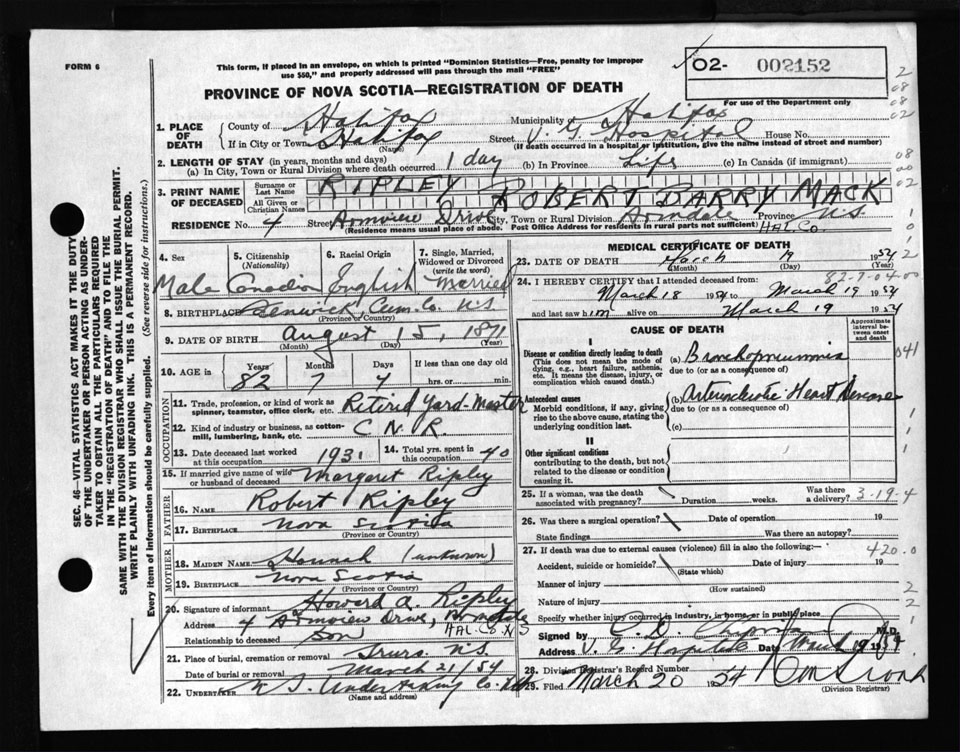 FORM 6
This form, if placed in an envelope, on which is printed "Dominion Statistics—Free, penalty for improper
use $50," and properly addressed will pass through the mail "FREE"
PROVINCE OF NOVA SCOTIA—REGISTRATION OF DEATH
02- 002152
For use of the Department only
1. PLACE OF DEATH
County of Halifax Municipality of Halifax
If in City or Town Halifax (Name) Street V. G. Hospital House No.
(If death occurred in a hospital or institution, give the name instead of street and number)
2. LENGTH OF STAY (in years, months and days)
(a) In City, Town or Rural Division where death occurred 1 day (b) In Province Life (c) In Canada (if immigrant)
3. PRINT NAME OF DECEASED
Surname or Last Name RIPLEY
All Given or Christian Names ROBERT BARRY MACK
RESIDENCE No. 4 Street Armview Drive City, Town or Rural Division Armdale Province N.S.
(Residence means usual place of abode. Post Office Address for residents in rural parts not sufficient) HAL. CO
4. Sex Male
5. Citizenship (Nationality) Canadian
6. Racial Origin English
7. Single, Married, Widowed or Divorced (write the word) Married
8. BIRTHPLACE Fenwick, Cum. Co. N.S.
(Province or Country)
9. DATE OF BIRTH August 15, 1871
(Month) (Day) (Year)
10. AGE in Years 82 Months 7 Days 4 If less than one day old hrs. or min.
OCCUPATION
11. Trade, profession, or kind of work as spinner, teamster, office clerk, etc. Retired Yard-Master
12. Kind of industry or business, as cotton-mill, lumbering, bank, etc. C N R
13. Date deceased last worked at this occupation 1931
14. Total yrs. spent in this occupation 40
15. If married give name of wife or husband of deceased Margaret Ripley
FATHER
16. NAME Robert Ripley
17. BIRTHPLACE Nova Scotia
(Province or Country)
MOTHER
18. MAIDEN NAME (unknown)
19. BIRTHPLACE Nova Scotia
(Province or Country)
20. Signature of informant Howard A. Ripley
Address 4 Armview Drive, Armdale
HAL. CO. N S
Relationship to deceased Son
21. Place of burial, cremation or removal Truro N.S.
Date of burial or removal March 21/54
22. UNDERTAKER N.S. Undertaking Co. Ltd
(Name and address)
MEDICAL CERTIFICATE OF DEATH
23. DATE OF DEATH March 19 1954
(Month) (Day) (Year)
24. I HEREBY CERTIFY that I attended deceased from:
82-7-04-00
March 18 1954 to March 19 1954
and last saw him alive on March 19 1954
CAUSE OF DEATH
Approximate interval between onset and death
I
Disease or condition directly leading to death
(This does not mean the mode of dying, e.g., heart failure, asthenia, etc. It means the disease, injury, or complication which caused death.)
(a) Bronchopneumonia
due to (or as a consequence of)
Antecedent causes
Morbid conditions, if any, giving rise to the above cause, stating the underlying condition last.
(b) Arteriosclerotic Heart Disease
due to (or as a consequence of)
(c)
II
Other significant conditions
contributing to the death, but not related to the disease or condition causing it.
25. If a woman, was the death associated with pregnancy? Duration weeks. Was there a delivery? 3-19-4
26. Was there a surgical operation? Date of operation 19
State findings Was there an autopsy?
27. If death was due to external causes (violence) fill in also the following:— 420.0
Accident, suicide or homicide? Date of injury 19
(State which)
Manner of injury
(How sustained)
Nature of injury
Specify whether injury occurred in industry, in home or in public place
Signed by M.D.
Address V. G. Hospital Date March 19 1954
28. Division Registrar's Record Number
29. Filed March 20 1954
(Division Registrar)
SEC. 46—VITAL STATISTICS ACT MAKES IT THE DUTY
OF THE UNDERTAKER OR PERSON ACTING AS UNDER-
TAKER TO OBTAIN ALL THE PARTICULARS REQUIRED
IN THE "REGISTRATION OF DEATH" AND TO FILE THE
SAME WITH THE DIVISION REGISTRAR WHO SHALL ISSUE THE BURIAL PERMIT.
WRITE PLAINLY WITH UNFADING INK. THIS IS A PERMANENT RECORD.
Every item of information should be carefully supplied. (See reverse side for instructions.)